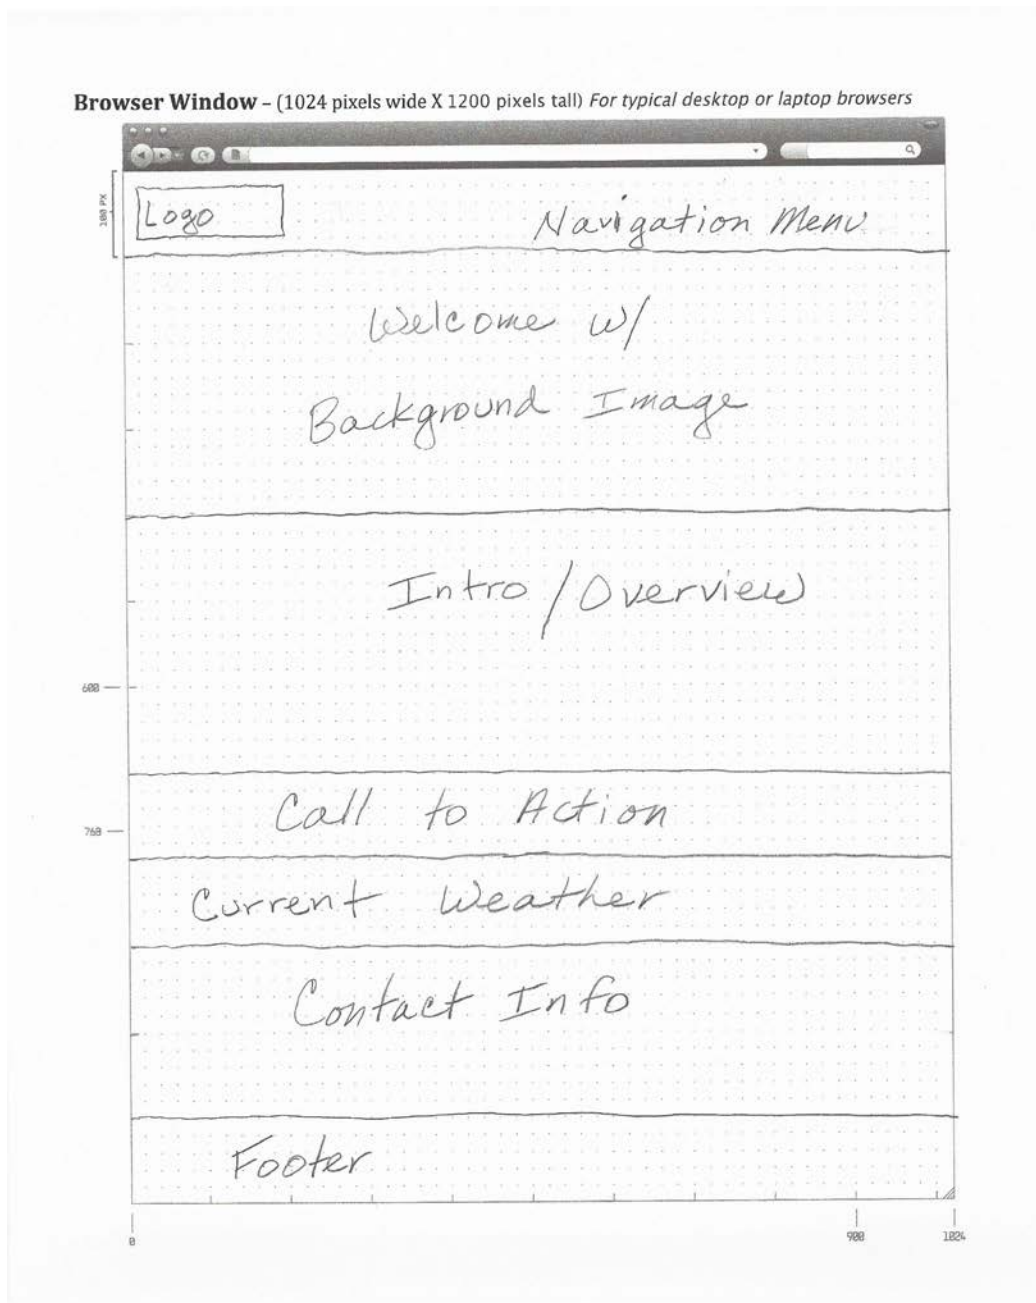 Browser Window – (1024 pixels wide X 1200 pixels tall) For typical desktop or laptop browsers
100 PX
Logo
Navigation Menu
Welcome w/
Background Image
Intro / Overview
600
Call to Action
768
Current Weather
Contact Info
Footer
0
900
1024